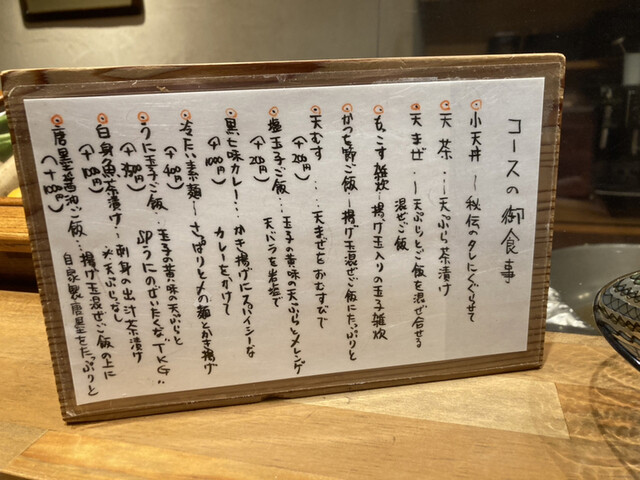 コースの御食事
小天丼 〜秘伝のタレにくぐらせて
天茶…〜天ぷら茶漬け
天まぜ…〜天ぷらとご飯を混ぜ合せる
混ぜご飯
もこす雑炊…揚げ玉入りの玉子雑炊
かつを節ご飯〜揚げ玉混ぜご飯にたっぷりと
天むす…天まぜをおむすびで
(+200円)
塩玉子ご飯…玉子の黄味の天ぷらとメレンゲ
(+200円)
天バラを岩塩で
黒七味カレー…かき揚げにスパイシーな
(+1000円)
カレーをかけて
冷たい素麺〜さっぱりと〆の麺とかき揚げ
(+400円)
うに玉子ご飯…玉子の黄味の天ぷらと
SPうにのぜいたくな"TKG"
白身魚茶漬け…刺身の出汁茶漬け
※天ぷらなし
唐墨醤油ご飯…揚げ玉混ぜご飯の上に
自家製唐墨をたっぷりと